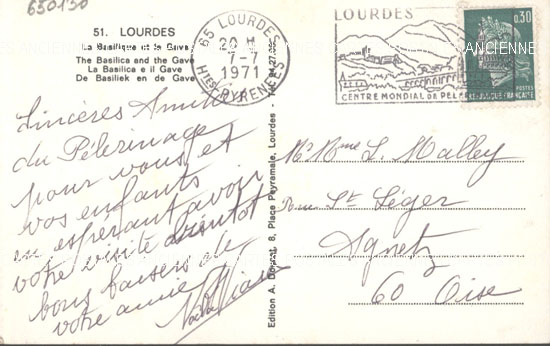 650130
51. LOURDES
La Basilique et le Gave
The Basilica and the Gave
La Basilica e il Gave
De Basiliek en de Gave
65 LOURDES
20 H
7-7
1971
HTES PYRENEES
LOURDES
CENTRE MONDIAL DE PELER
0,30
POSTES
REPUBLIQUE FRANÇAISE
ANCIENNE
Sincères Amitiés
du Pélerinage
pour vous et
vos enfants
en espérant avoir
votre visite bientot
bons baisers de
votre amie
Edition A. Doucet, 8, Place Peyramale, Lourdes - Tél. 94.27.09
Mr Mme L. Malley
Rue St Léger
Agnetz
60 Oise